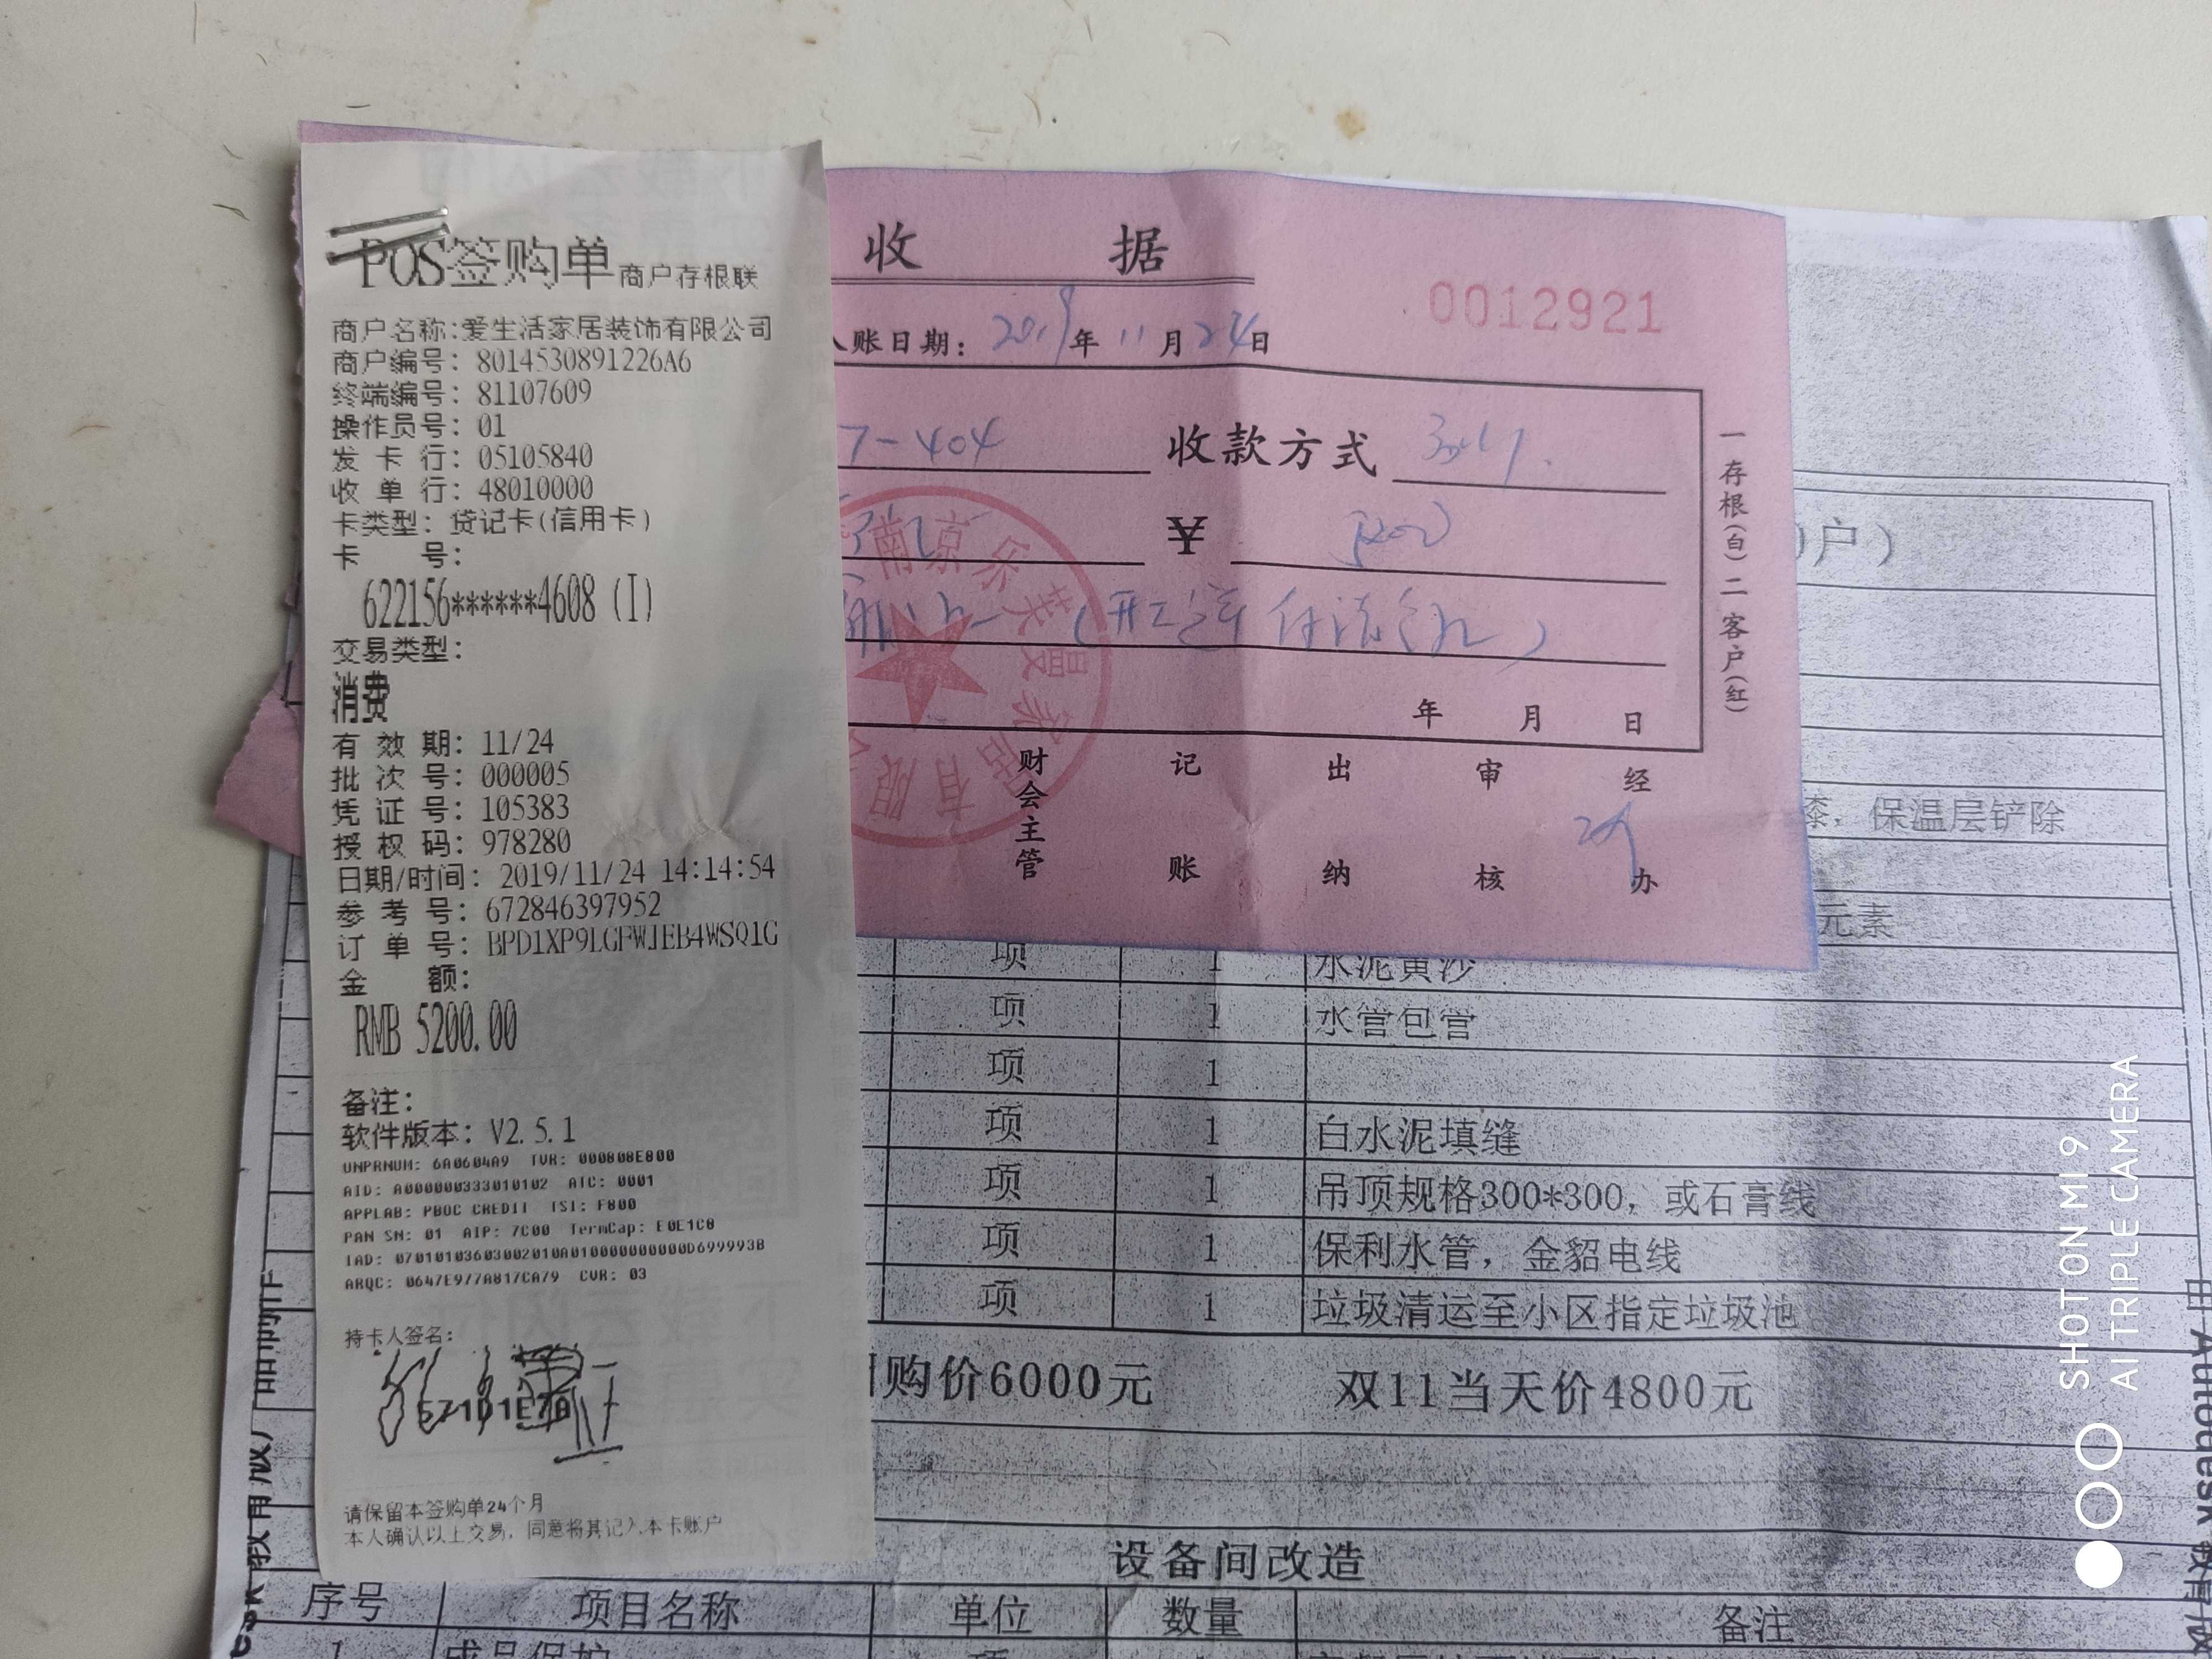 POS签购单 商户存根联
商户名称:爱生活家居装饰有限公司
商户编号: 8014530891226A6
终端编号: 81107609
操作员号: 01
发 卡 行: 05105840
收 单 行: 48010000
卡类型: 贷记卡(信用卡)
卡 号:
622156******4608 (I)
交易类型:
消费
有 效 期: 11/24
批 次 号: 000005
凭 证 号: 105383
授 权 码: 978280
日期/时间: 2019/11/24 14:14:54
参 考 号: 672846397952
订 单 号: BPD1XP9LGFWJEB4WSQ1G
金 额:
RMB 5200.00
备注:
软件版本: V2.5.1
UNPRNUM: 6A0604A9 TVR: 000808E800
AID: A000000333010102 ATC: 0001
APPLAB: PBOC CREDIT TSI: F800
PAN SN: 01 AIP: 7C00 TermCap: E0E1C8
IAD: 07010103603002010A010000000000D699993B
ARQC: 0647E977A817CA79 CVR: 03
持卡人签名:
671D1E7B
请保留本签购单24个月
本人确认以上交易, 同意将其记入本卡账户
收 据
0012921
账日期: 2019年 11月 24日
7-404 收款方式
¥ 5200
(开工 付清
年 月 日
财会主管 记账 出纳 审核 经办
一存根(白)二客户(红)
南京乐芙曼家居 有限
户)
漆, 保温层铲除
元素
项 1 水泥黄沙
项 1 水管包管
项 1
项 1 白水泥填缝
项 1 吊顶规格300*300, 或石膏线
项 1 保利水管, 金貂电线
项 1 垃圾清运至小区指定垃圾池
购价6000元 双11当天价4800元
设备间改造
序号 项目名称 单位 数量 备注
1 成品保护 项
由 Autodesk 教育版
SHOT ON MI 9
AI TRIPLE CAMERA